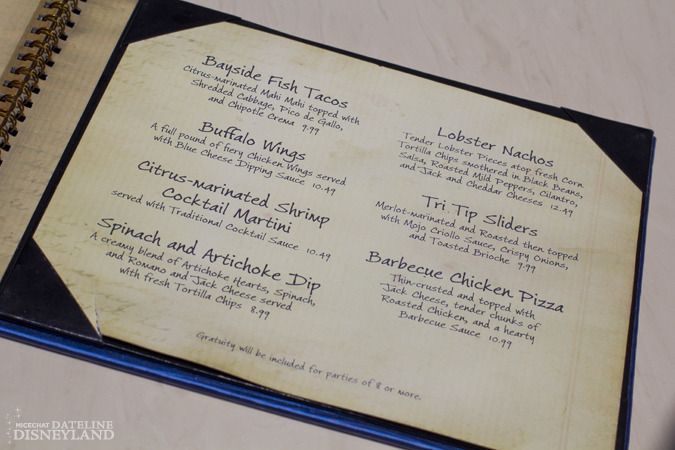 Bayside Fish Tacos
Citrus-marinated Mahi Mahi topped with
Shredded Cabbage, Pico de Gallo,
and Chipotle Crema 9.99
Buffalo Wings
A full pound of fiery Chicken Wings served
with Blue Cheese Dipping Sauce 10.49
Citrus-marinated Shrimp
Cocktail Martini
served with Traditional Cocktail Sauce 10.49
Spinach and Artichoke Dip
A creamy blend of Artichoke Hearts, Spinach,
and Romano and Jack Cheese served
with fresh Tortilla Chips 8.99
Lobster Nachos
Tender Lobster Pieces atop fresh Corn
Tortilla Chips smothered in Black Beans,
Salsa, Roasted Mild Peppers, Cilantro,
and Jack and Cheddar Cheeses 12.49
Tri Tip Sliders
Merlot-marinated and Roasted then topped
with Mojo Criollo Sauce, Crispy Onions,
and Toasted Brioche 9.99
Barbecue Chicken Pizza
Thin-crusted and topped with
Jack Cheese, tender chunks of
Roasted Chicken, and a hearty
Barbecue Sauce 10.99
Gratuity will be included for parties of 8 or more.
MICECHAT DATELINE
DISNEYLAND